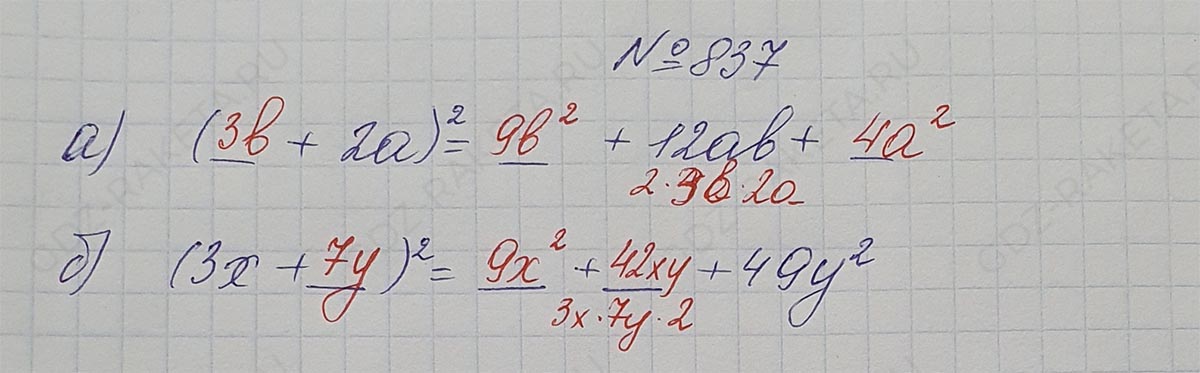 №837
а) (3b + 2a)² = 9b² + 12ab + 4a²
2·3b·2a
б) (3x + 7y)² = 9x² + 42xy + 49y²
3x·7y·2